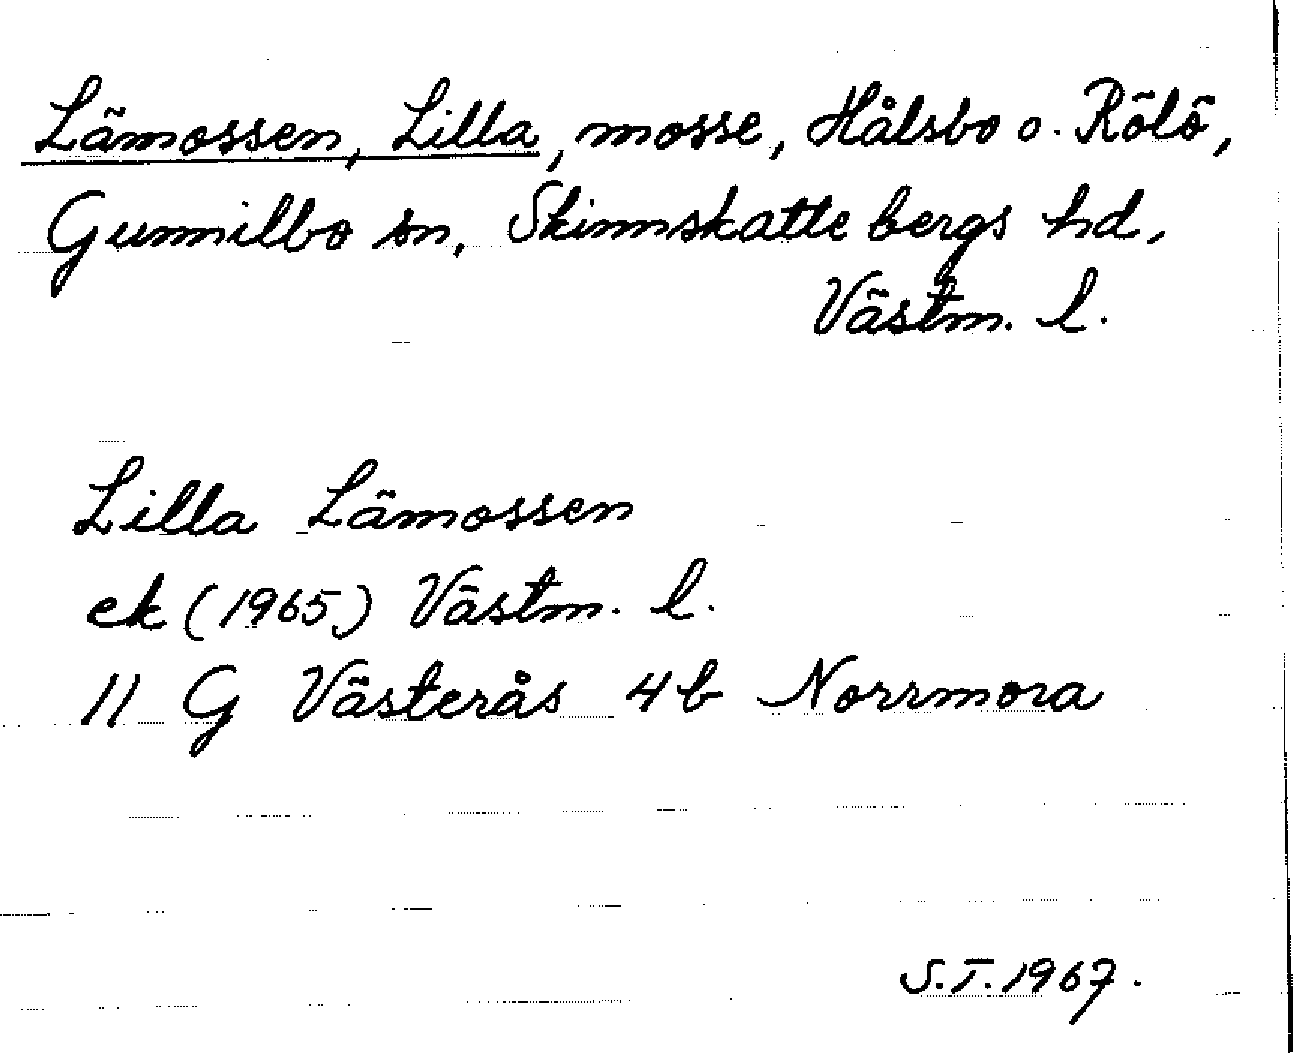 Lämossen, Lilla, mosse, Hålsbo o. Rölö,
Gunnilbo sn, Skinnskattebergs hd,
Västm. l.
Lilla Lämossen
ek (1965) Västm. l.
11 G Västerås 4b Norrmora
S.T. 1967.